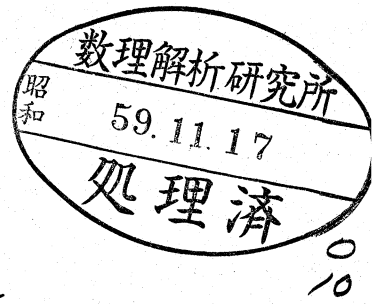 数理解析研究所
昭和
59.11.17
処理済
010